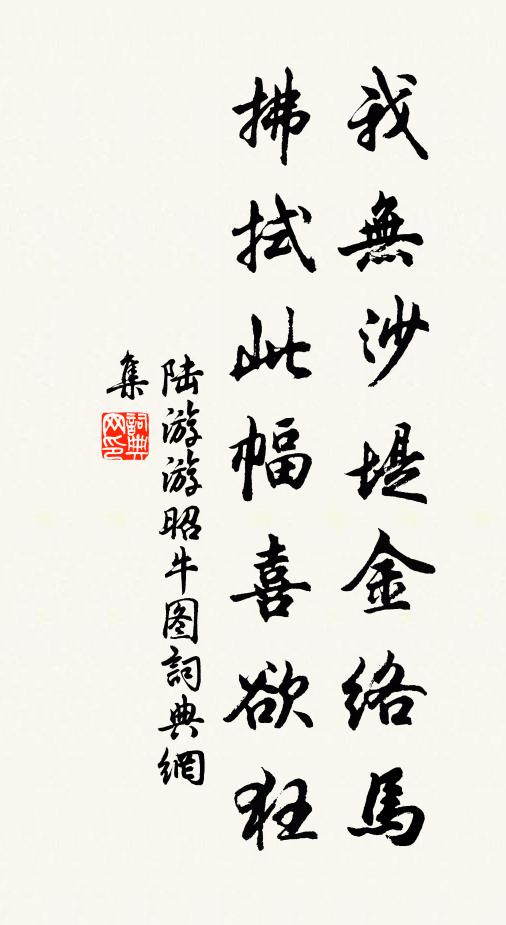 我無沙堤金絡馬
拂拭此幅喜欲狂
陆游游昭牛图詞典網
集
詞典网印